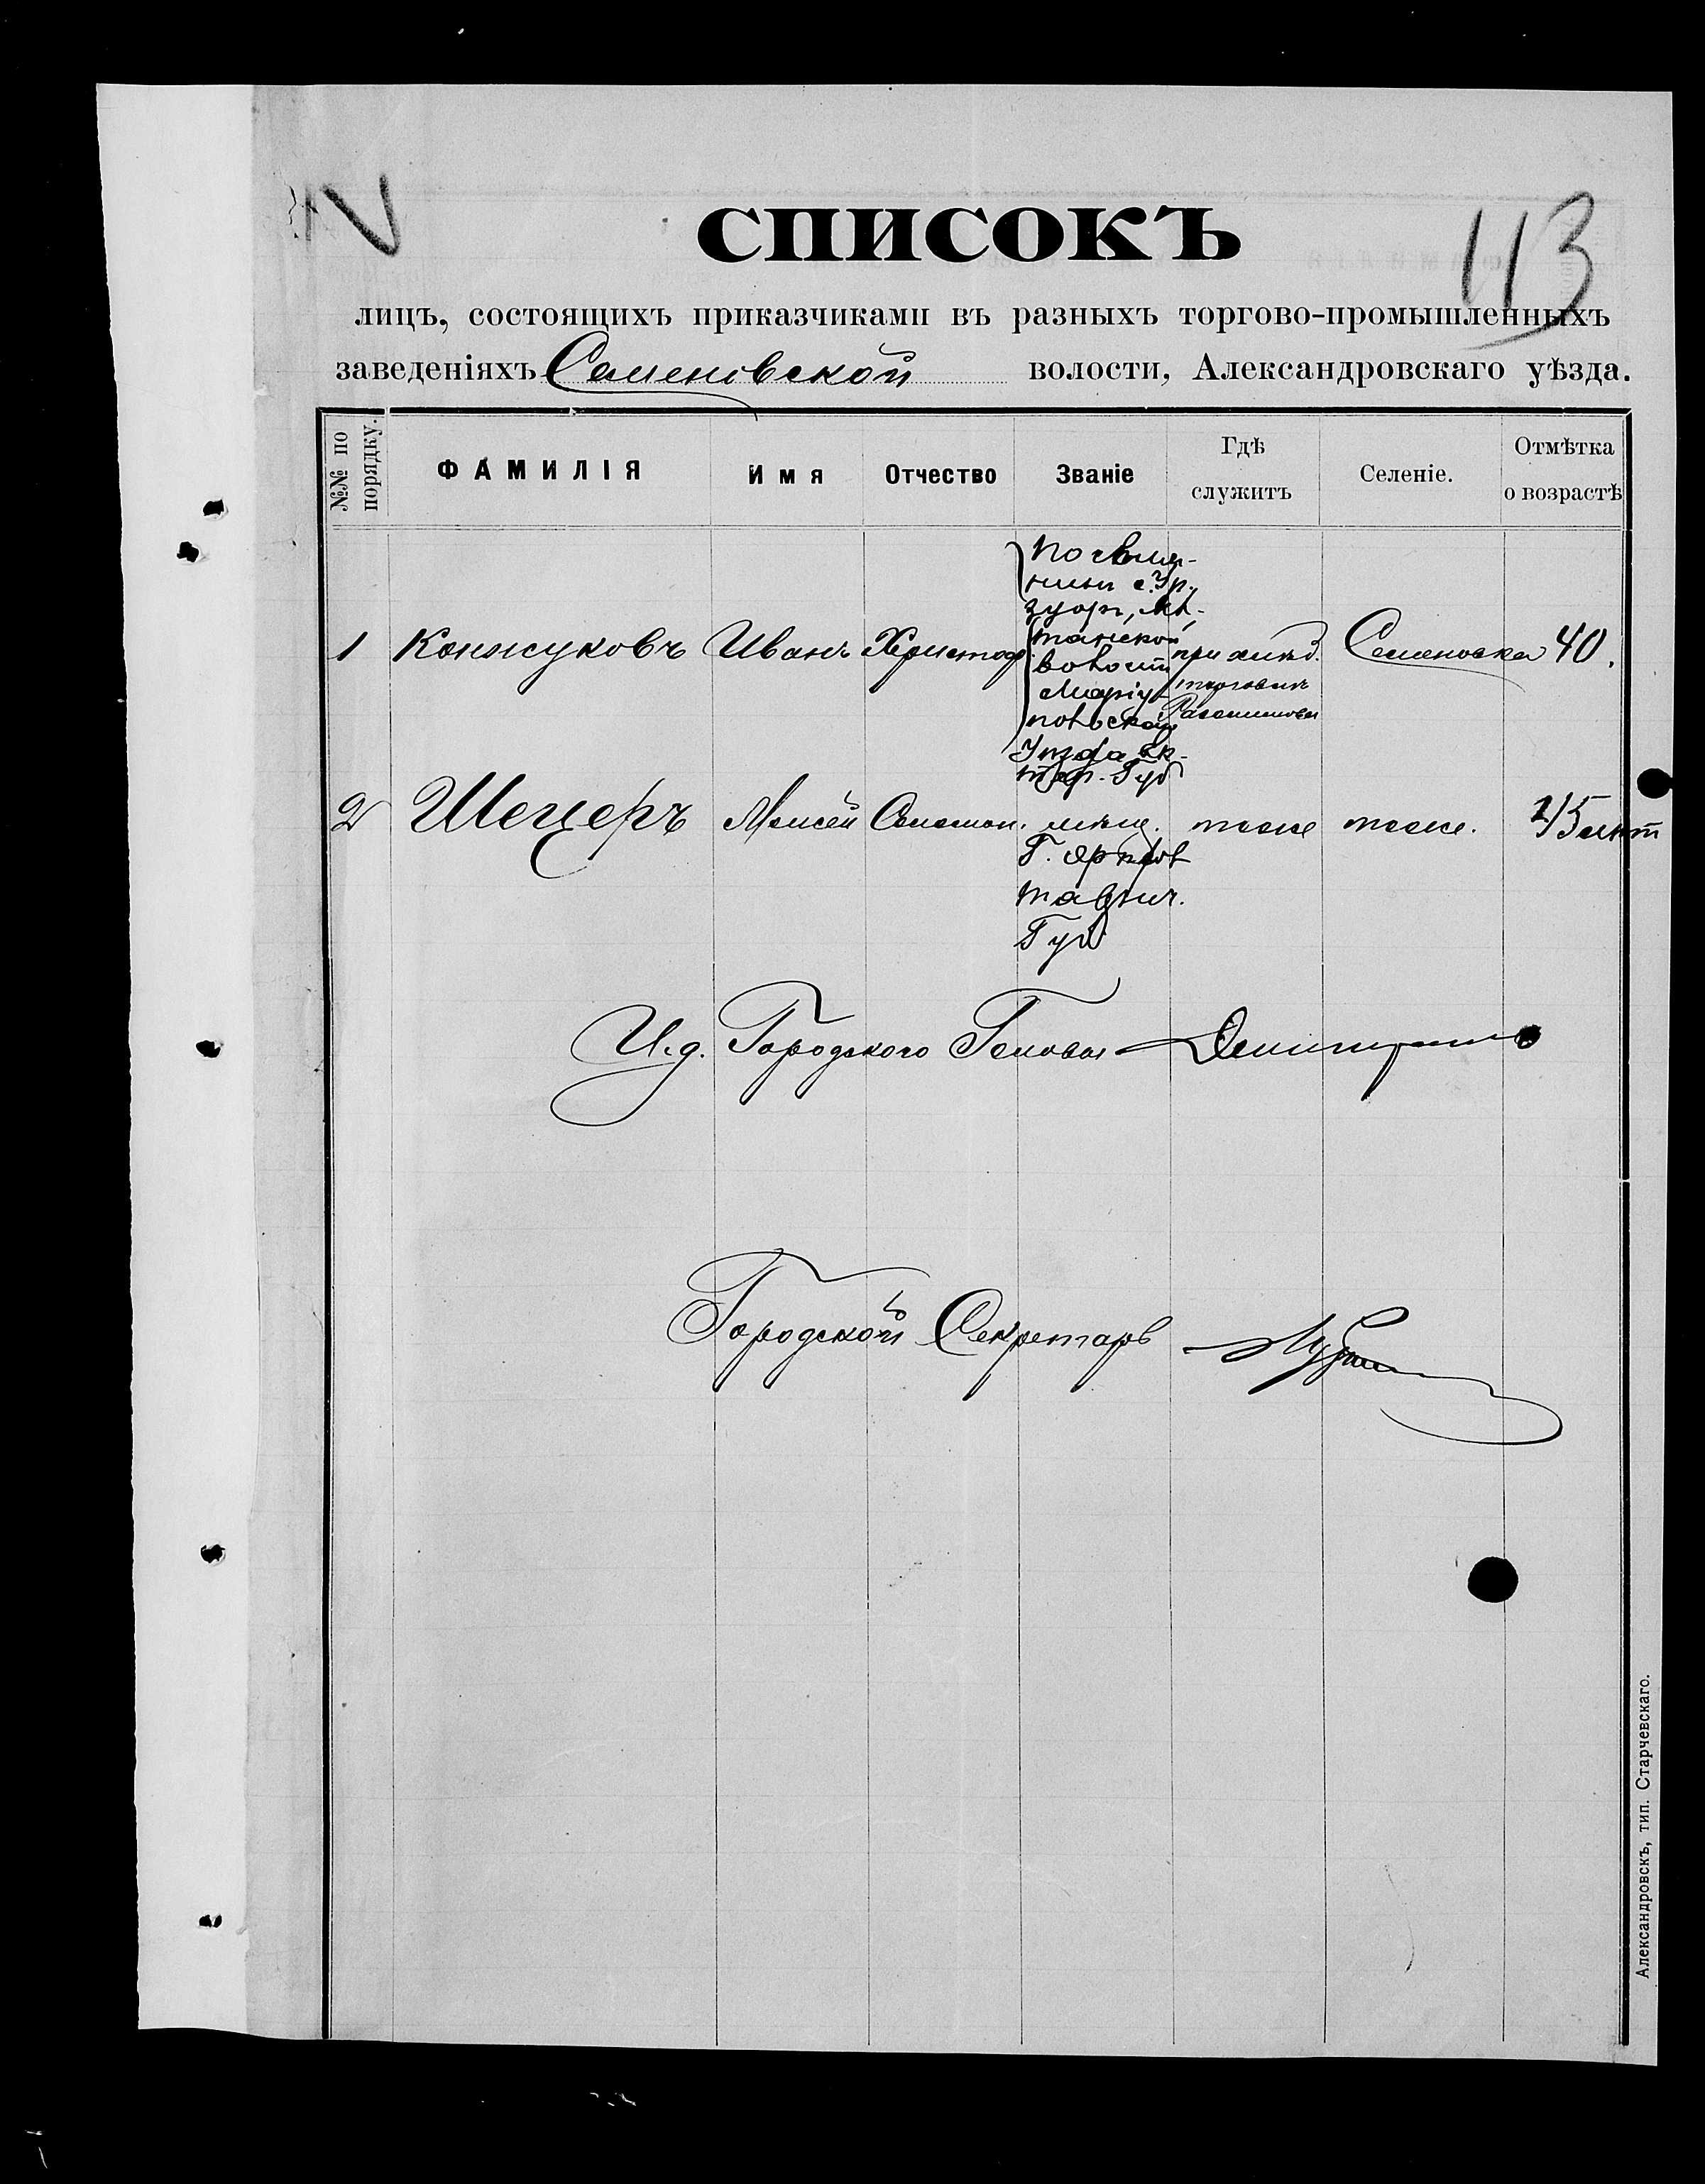 113
СПИСОКЪ
лицъ, состоящихъ приказчиками въ разныхъ торгово-промышленныхъ
заведеніяхъ Семеновской волости, Александровскаго уѣзда.
№№ по порядку.
ФАМИЛІЯ
Имя
Отчество
Званіе
Гдѣ служитъ
Селеніе.
Отмѣтка о возрастѣ
1 Конжуковъ Иванъ Христоф.
Поселя-
нинъ с. Ур-
зуфъ, Ман-
гушской
волости
Маріу-
польскаго
Уѣзда Ек-
тер. Губ
при хлѣб.
торговлѣ
Семеновка 40.
2 Шецеръ Моисей Соломон. мѣщ. тоже тоже. 25 лѣт
Г. Орѣхов
Таврич.
Губ
И.д. Городского Головы
Городской Секретарь
Александровскъ, тип. Старчевскаго.